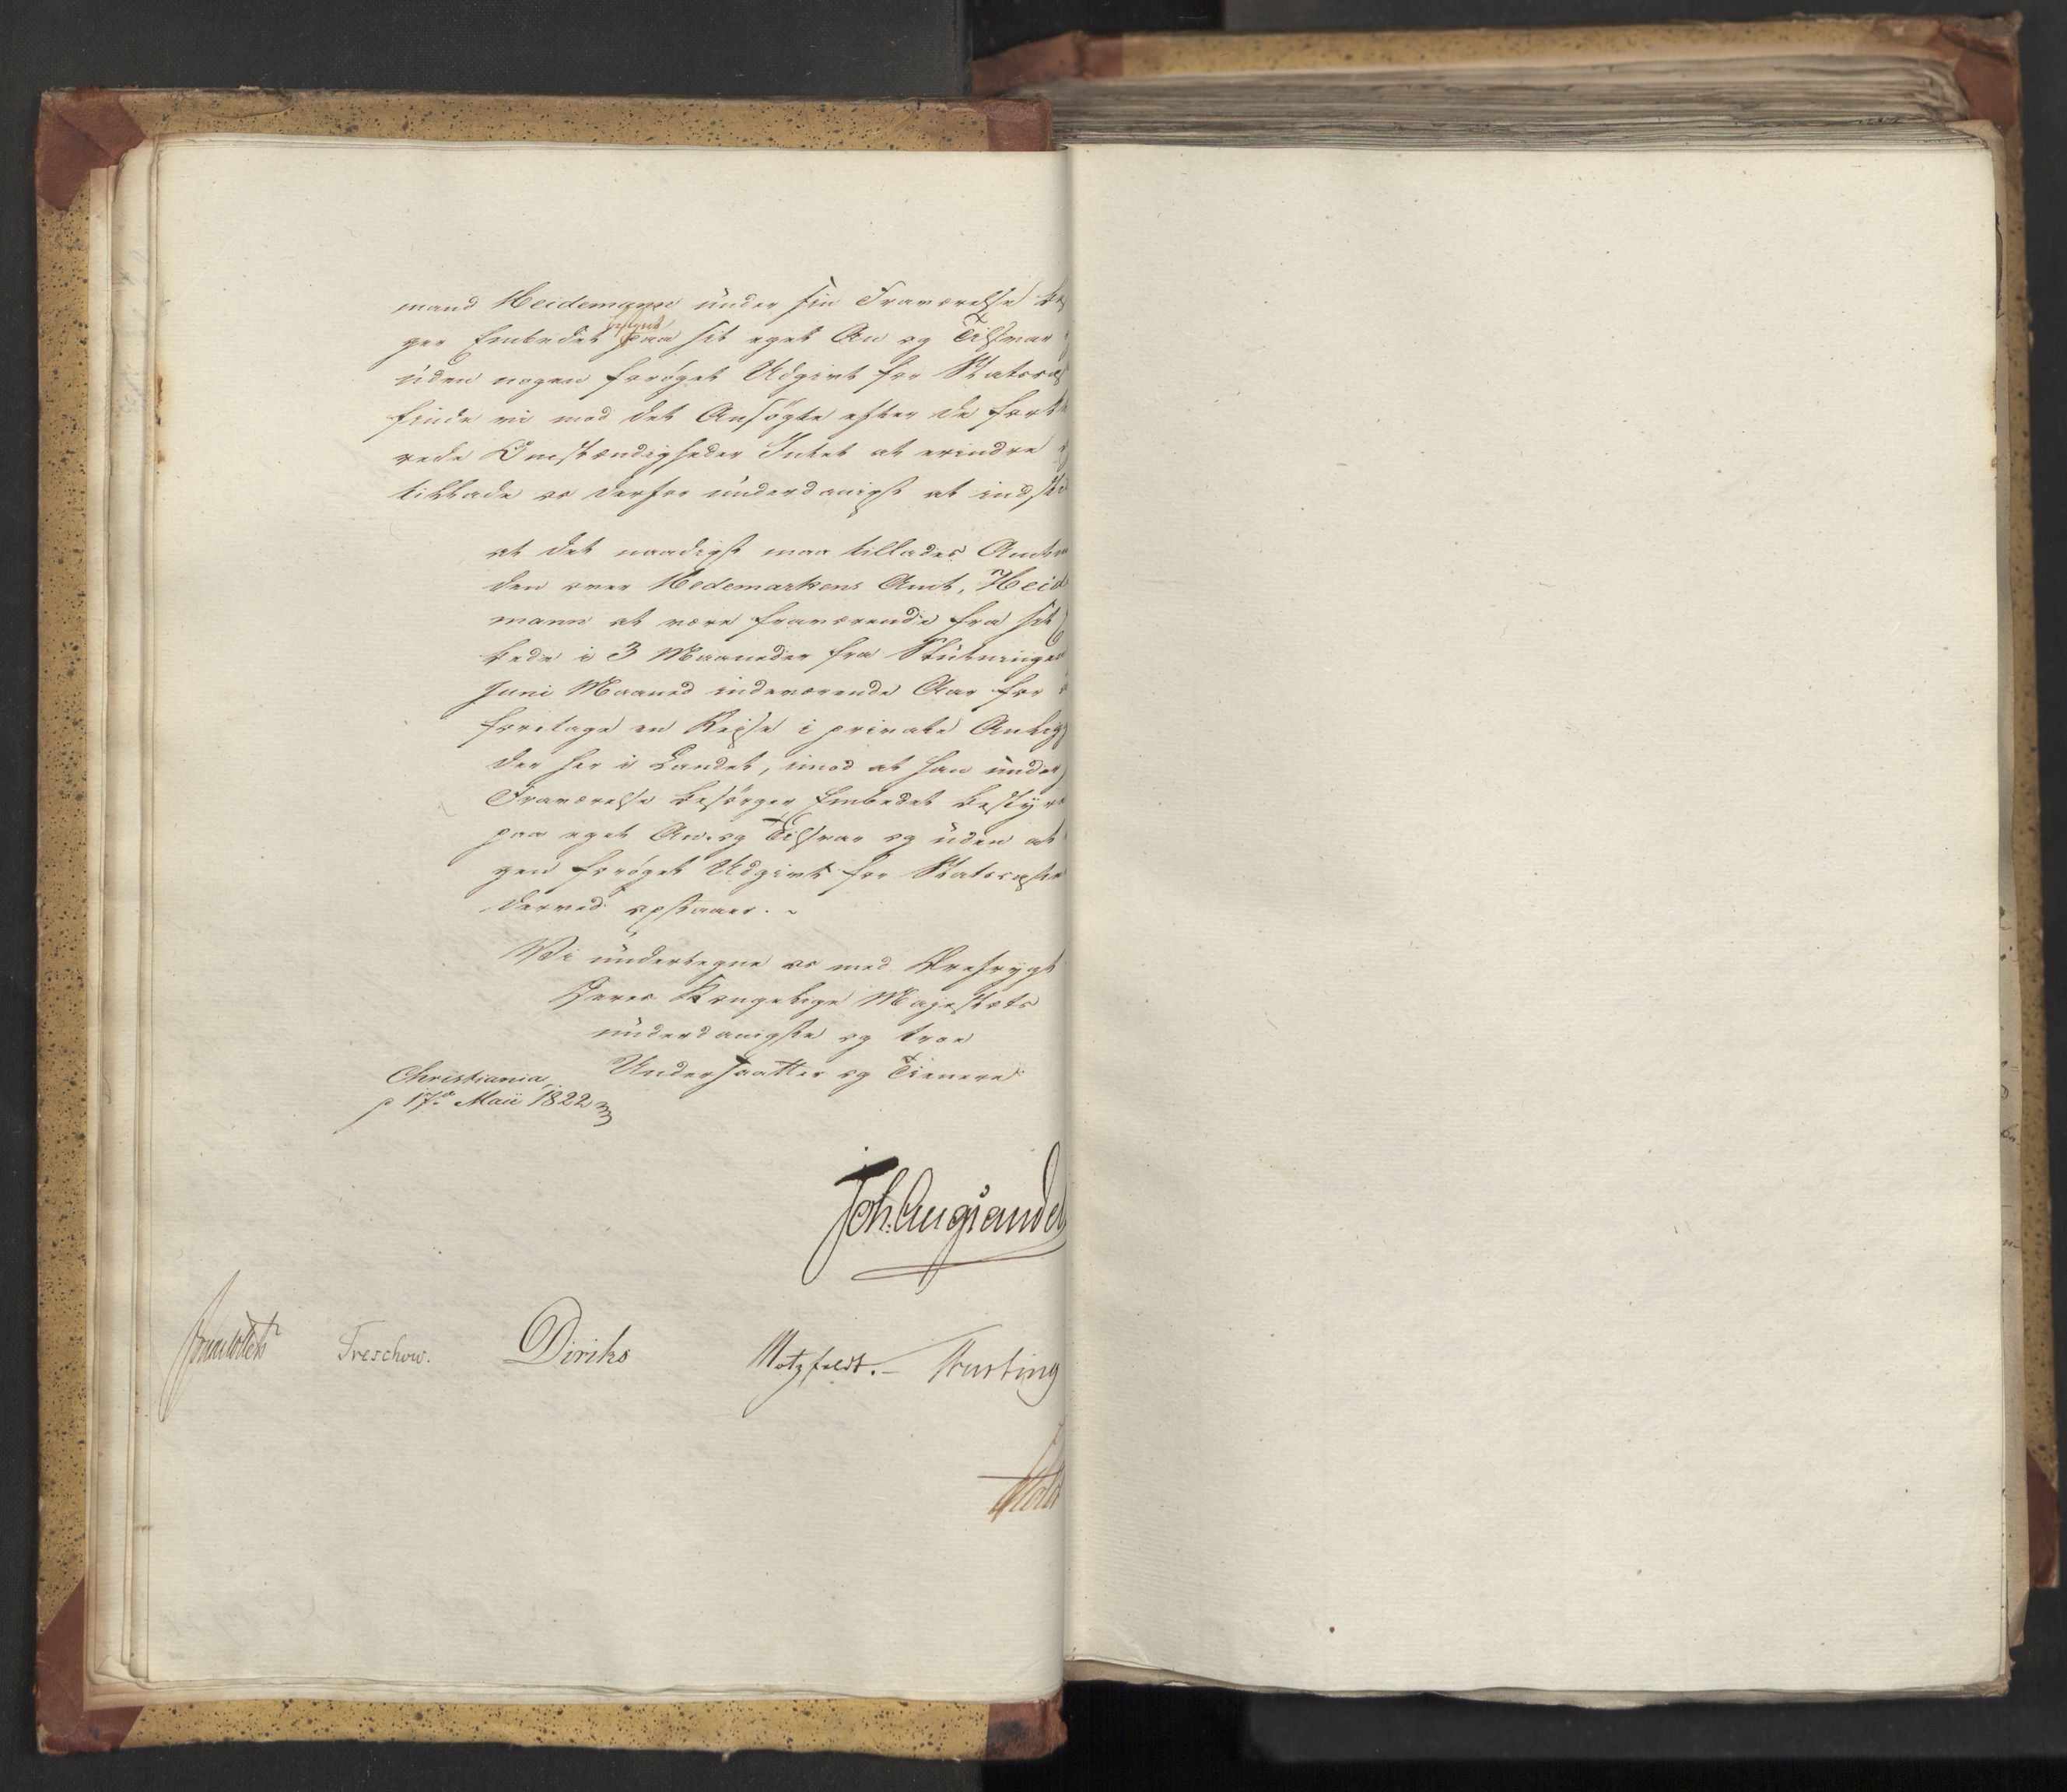 mand Heidemann under sin Fraværelse be
ger Embedet bestyret paa sit eget An og Tilsvar
uden nogen forøget Udgivt for Statscas
finde vi mod det Ansøgte efter de forkla
rede Omstændigheder Intet at erindre
tillade os derfor underdanigst at indstil
at det naadigst maa tillades Amtm
den over Hedemarkens Amt, Heid
mann at være fraværende fra sit
bede i 3 Maaneder fra Slutningen
Juni Maaned indeværende Aar for
foretage en Reise i private Anlig
der her i Landet, imod at han under
Fraværelse besørger Embedet bestyr
paa eget An- og Tilsvar og uden at
gen forøget Udgivt for Statscassen
derved opstaaer. -
Vi undertegne os med Ærefrygt
Deres Kongelige Majestæts
underdanigste og troe
Undersaatter og Tienere
Christiania,
p 17de Maii 1822
Joh. Aug Sandel
Treschow. Diriks Motzfeldt. - Krusting
Holst